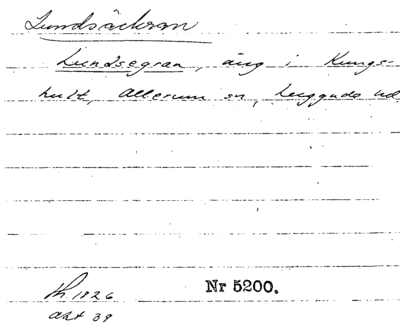 Lundsåkran
Lundsegran, äng i Kungs-
hult, Allerum sn, Luggude hd
lh 1826
akt 39
Nr 5200.